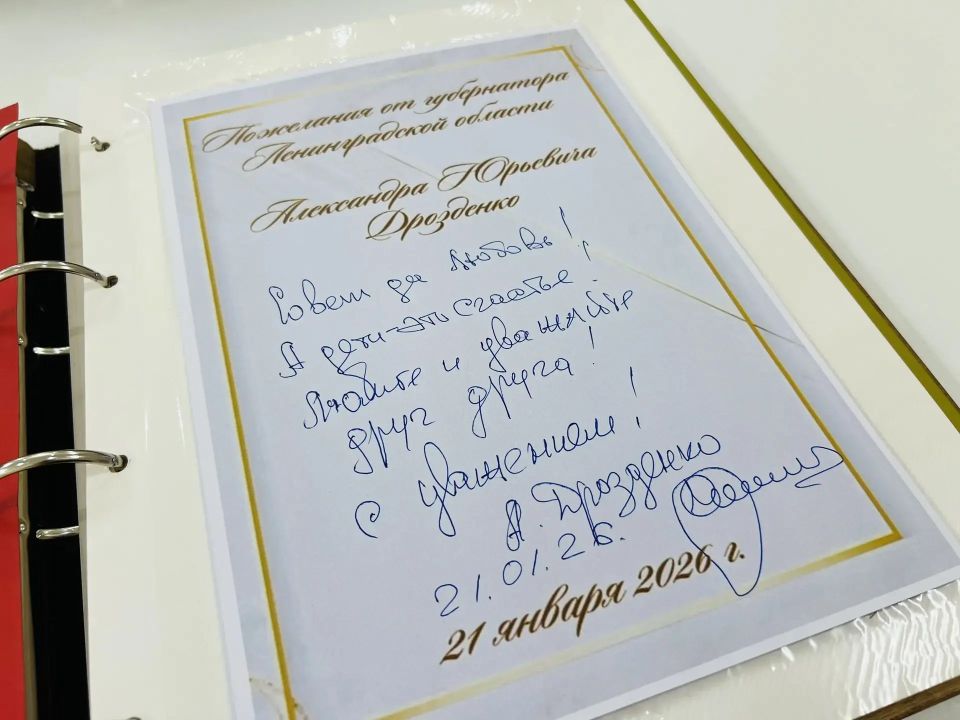 Пожелания от губернатора
Ленинградской области
Александра Юрьевича
Дрозденко
Совет да любовь!
А дети-это счастье
Любите и уважайте
друг друга!
С уважением!
А. Дрозденко
21.01.26.
21 января 2026 г.